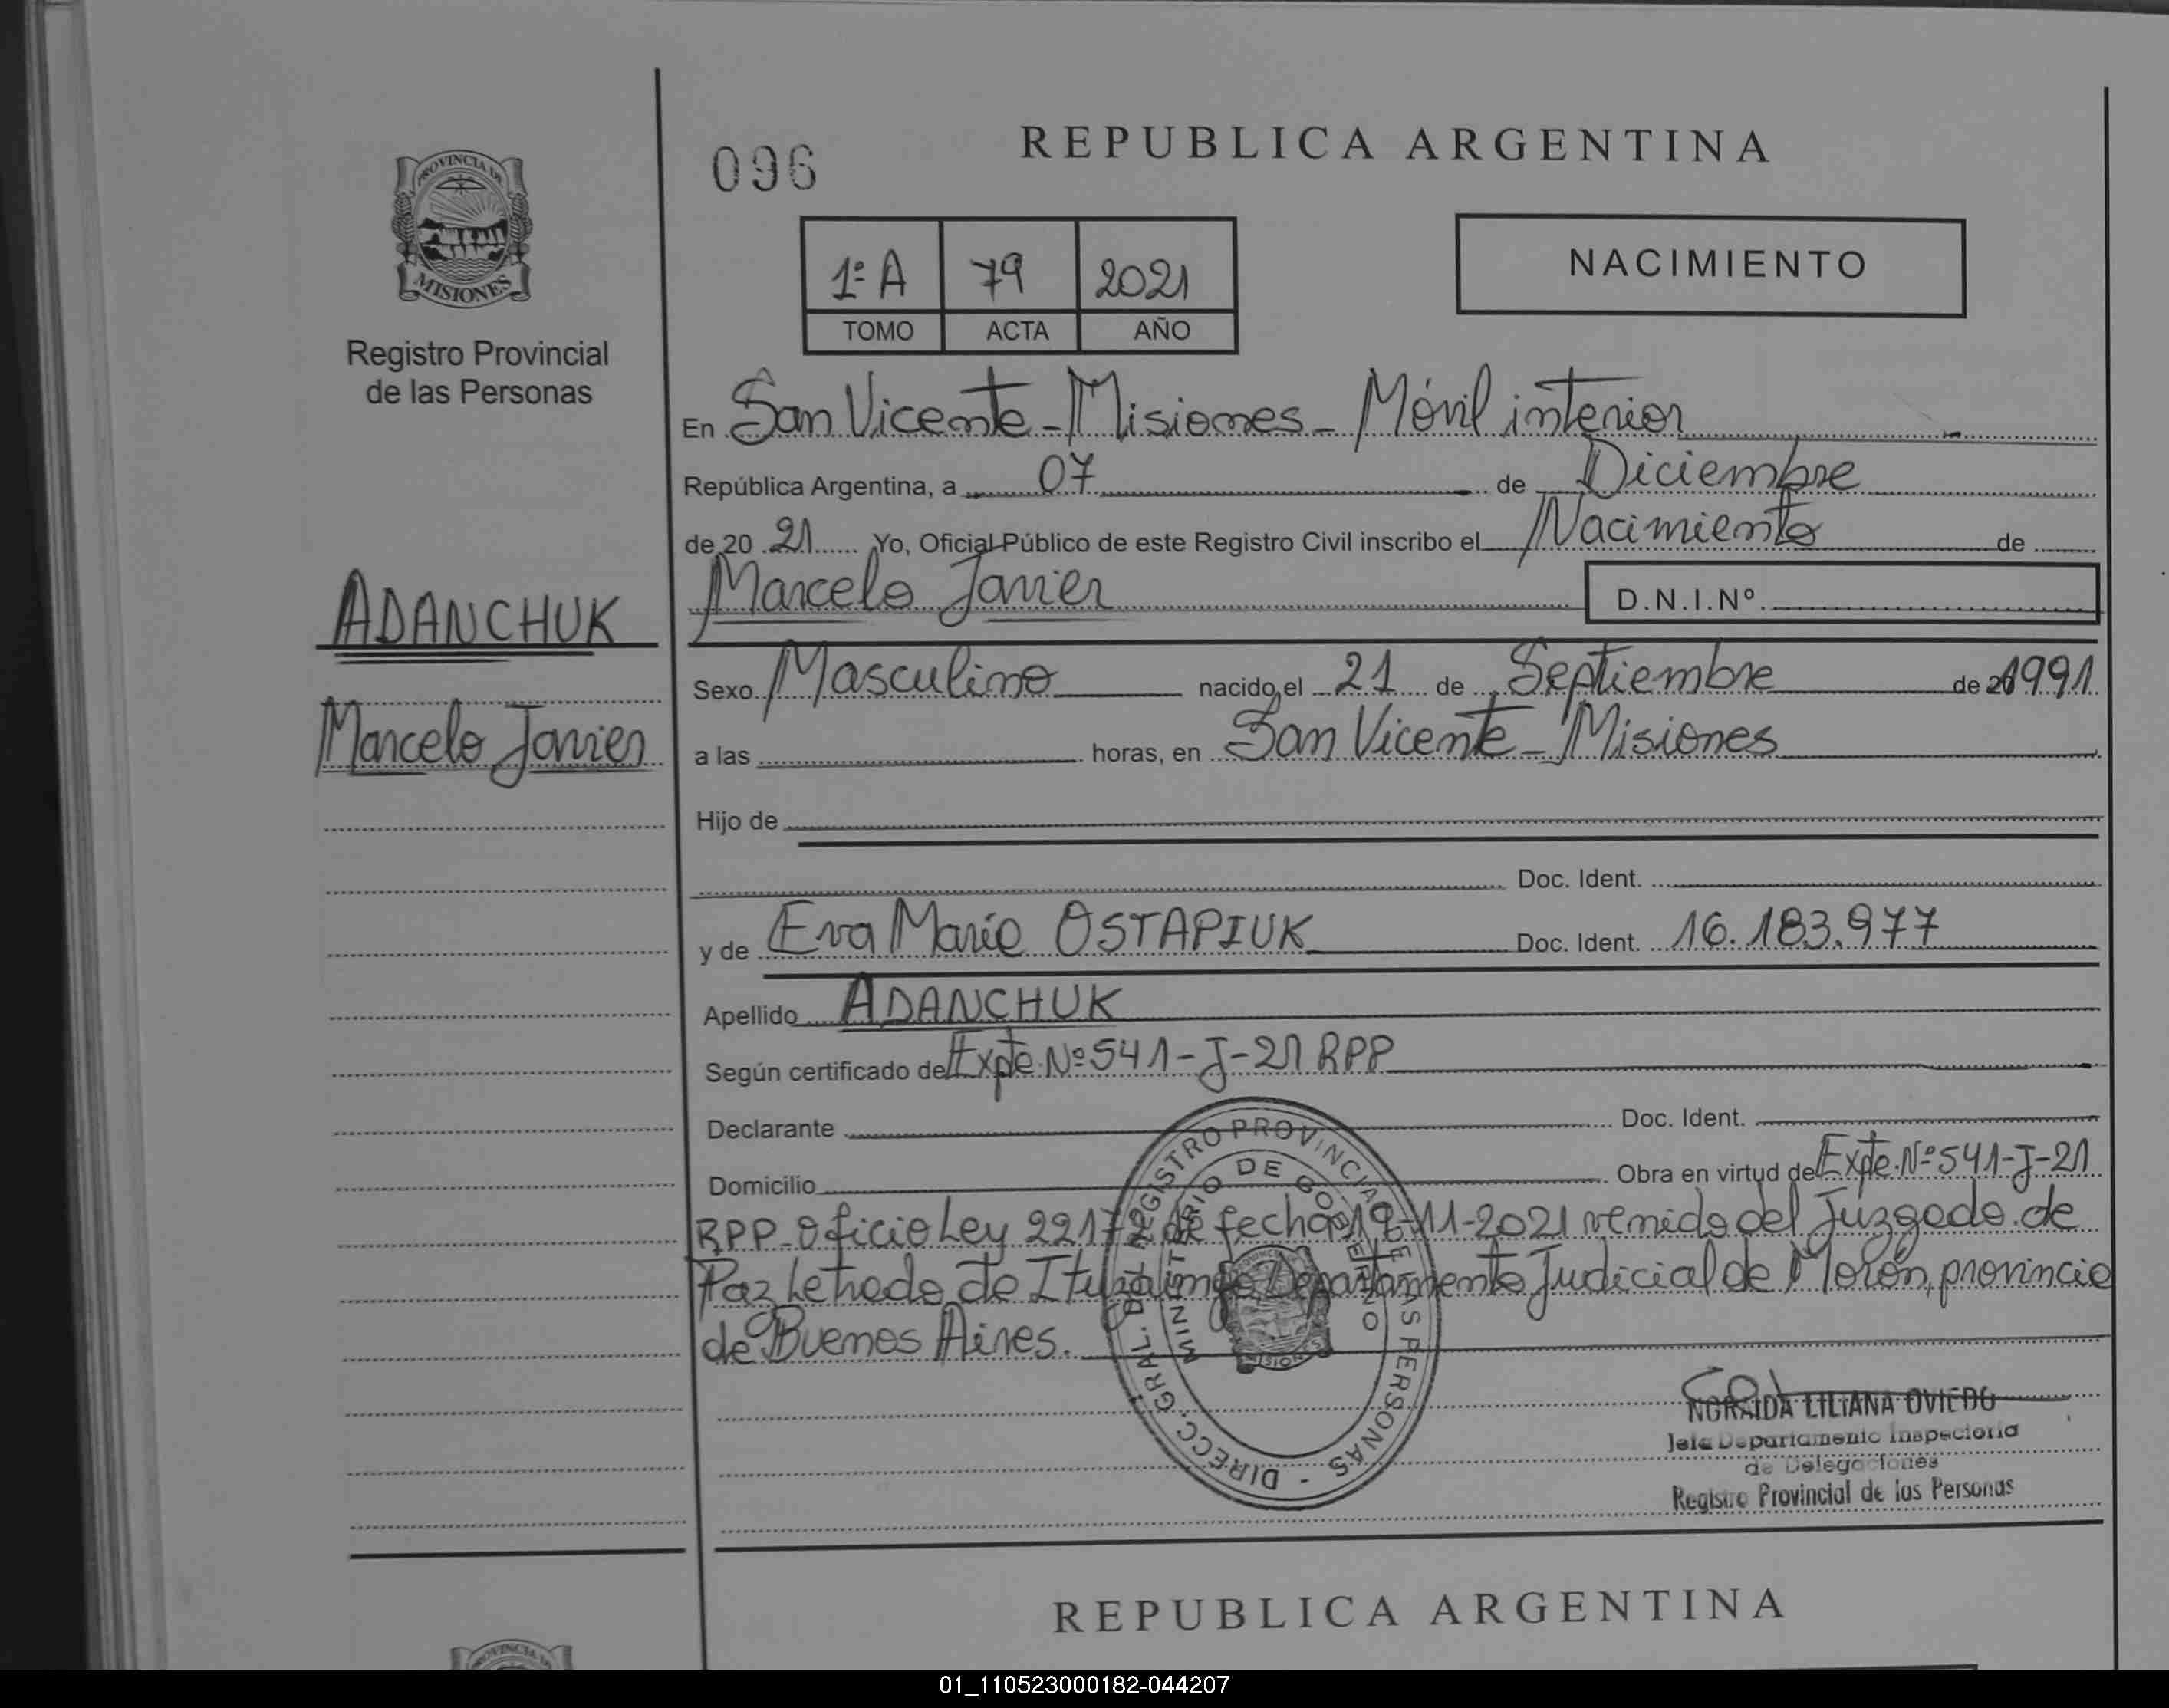 096
REPUBLICA ARGENTINA
PROVINCIA DE
MISIONES
Registro Provincial
de las Personas
1º A 79 2021
TOMO ACTA AÑO
NACIMIENTO
En San Vicente - Misiones - Móvil interior
República Argentina, a 07 de Diciembre
de 20 21 Yo, Oficial Público de este Registro Civil inscribo el Nacimiento de
Marcelo Javier D.N.I.Nº.
ADANCHUK
Marcelo Javier
Sexo Masculino nacido el 21 de Septiembre de 1991
a las horas, en San Vicente - Misiones
Hijo de
Doc. Ident.
y de Eva María OSTAPIUK Doc. Ident. 16.183.977
Apellido ADANCHUK
Según certificado de Expte. Nº 541-J-21 RPP
Declarante Doc. Ident.
Domicilio Obra en virtud de Expte. Nº 541-J-21
RPP - Oficio Ley 22172 de fecha 19-11-2021 venido del Juzgado de
Paz Letrado de Ituzaingo Departamento Judicial de Morón, provincia
de Buenos Aires.
DIRECC. GRAL. DEL REGISTRO PROVINCIAL DE LAS PERSONAS -
MINISTERIO DE GOBIERNO
MISIONES
NORAIDA LILIANA OVIEDO
Jefa Departamento Inspectoria
de Delegaciones
Registro Provincial de las Personas
REPUBLICA ARGENTINA
PROVINCIA DE
01_110523000182-044207